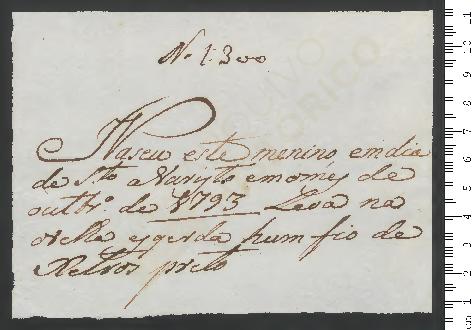 N. 1:300
Nasceu este menino, em dia
de S.to emomes de
outbr.o de 1793 Leva na
orelha esqerda hum fio de
Retros preto